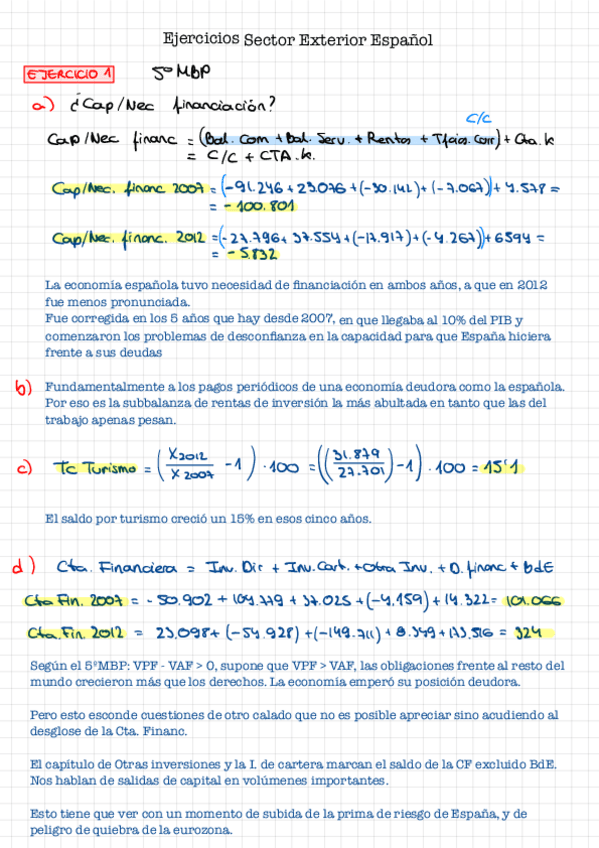 Ejercicios Sector Exterior Español
EJERCICIO 1 5º MBP
a) ¿Cap/Nec financiación?
C/C
Cap/Nec financ = (Bal. Com + Bal. Serv. + Rentas + Tfcias. Corr) + Cta. k
= C/C + CTA. k.
Cap/Nec. financ 2007 = (-91.246 + 23.076 + (-30.142) + (-7.067)) + 4.578 =
= - 100.801
Cap/Nec. financ. 2012 = (-27.796 + 37.554 + (-17.917) + (-4.267)) + 6594 =
= - 5.832
La economía española tuvo necesidad de financiación en ambos años, a que en 2012
fue menos pronunciada.
Fue corregida en los 5 años que hay desde 2007, en que llegaba al 10% del PIB y
comenzaron los problemas de desconfianza en la capacidad para que España hiciera
frente a sus deudas
b) Fundamentalmente a los pagos periódicos de una economía deudora como la española.
Por eso es la subbalanza de rentas de inversión la más abultada en tanto que las del
trabajo apenas pesan.
c) Tc Turismo = (X2012 / X2007 - 1) · 100 = ((31.879 / 27.701) - 1) · 100 = 15'1
El saldo por turismo creció un 15% en esos cinco años.
d) Cta. Financiera = Inv. Dir + Inv. Cart. + Otra Inv. + D. financ + BdE
Cta Fin. 2007 = - 50.902 + 104.779 + 37.025 + (-4.159) + 14.322 = 101.066
Cta. Fin 2012 = 23.098 + (-54.928) + (-149.711) + 8.349 + 173.516 = 324
Según el 5ºMBP: VPF - VAF > 0, supone que VPF > VAF, las obligaciones frente al resto del
mundo crecieron más que los derechos. La economía emperó su posición deudora.
Pero esto esconde cuestiones de otro calado que no es posible apreciar sino acudiendo al
desglose de la Cta. Financ.
El capítulo de Otras inversiones y la I. de cartera marcan el saldo de la CF excluido BdE.
Nos hablan de salidas de capital en volúmenes importantes.
Esto tiene que ver con un momento de subida de la prima de riesgo de España, y de
peligro de quiebra de la eurozona.